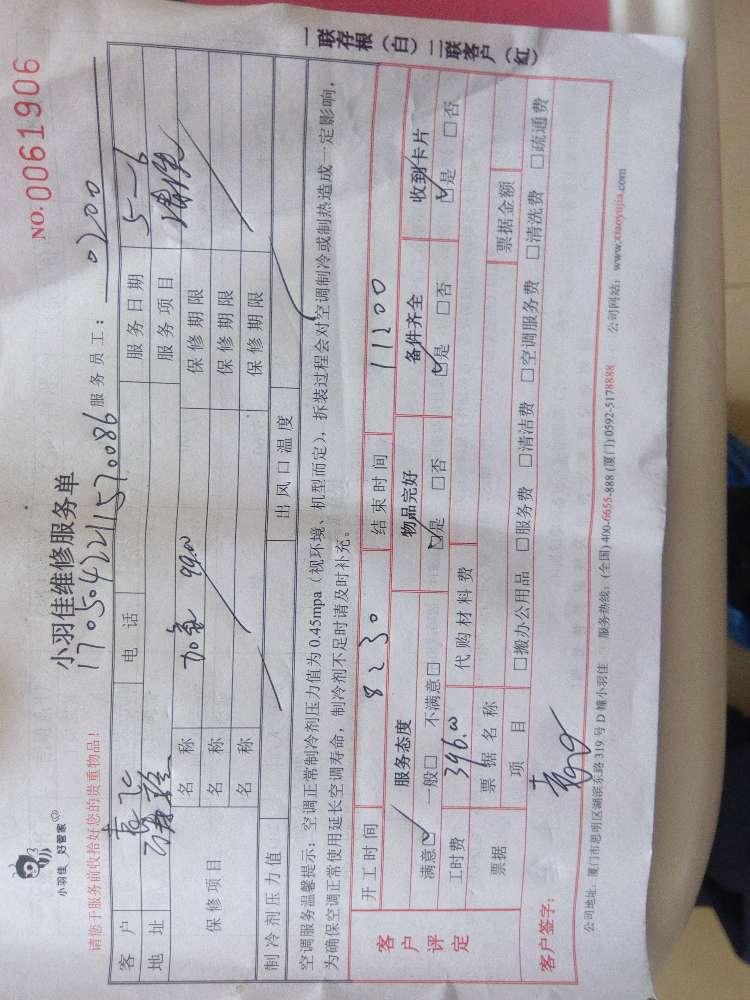 小羽佳 好管家
小羽佳维修服务单
NO.0061906
170504221157 0086
请您于服务前收拾好您的贵重物品!
服务员工: 0200
客户 电话 服务日期 5-6
地址 服务项目
保修项目 名称 加氟 99.00 保修期限
名称 保修期限
名称 保修期限
制冷剂压力值 出风口温度
空调服务温馨提示:空调正常制冷剂压力值为0.45mpa(视环境、机型而定),拆装过程会对空调制冷或制热造成一定影响,
为确保空调正常使用延长空调寿命,制冷剂不足时请及时补充。
一联存根(白)二联客户(红)
开工时间 8230 结束时间 11200
客户评定
服务态度 物品完好 备件齐全 收到卡片
满意☑ 一般□ 不满意□ ☑是 □否 ☑是 □否 ☑是 □否
工时费 396.00 代购材料费
票据 票据名称 票据金额
项目 □搬办公用品 □服务费 □清洁费 □空调服务费 □清洗费 □疏通费
客户签字:
公司地址:厦门市思明区湖滨东路319号D幢小羽佳 服务热线:(全国)400-6655-888 (厦门)0592-5178888 公司网站:www.xiaoyujia.com